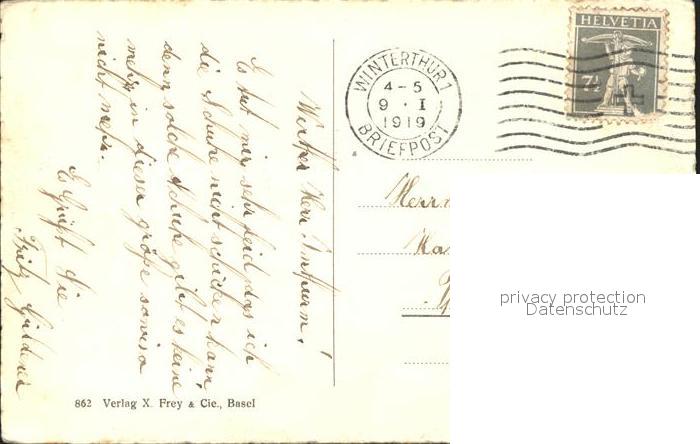 HELVETIA
7½
WINTERTHUR 1
4-5
9 · I
1919
BRIEFPOST
Werter Herr
Es tut mir sehr leid das ich
die Schuhe nicht schicken kann
denn solche Schuhe gibt es keine
mehr in dieser größe
nicht mehr.
Es grüßt Sie
Fritz
Herrn
862 Verlag X. Frey & Cie., Basel
privacy protection
Datenschutz